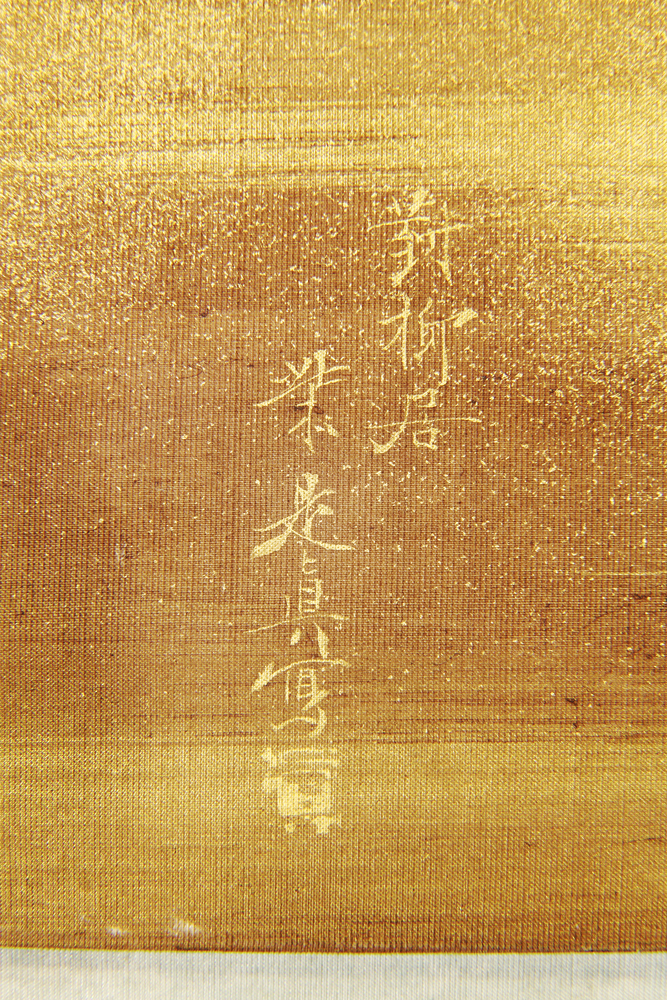 對柳居
柴是真寫